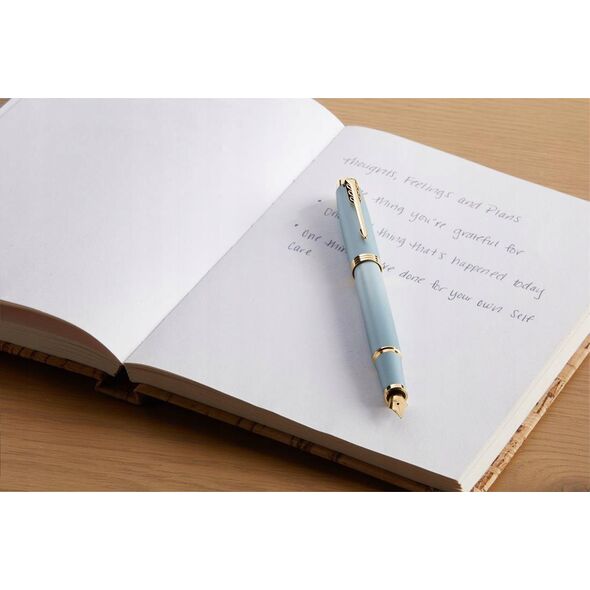 Thoughts, Feelings and Plans
thing you're grateful for
• One thing that's happened today
• One thing done for your own self
care